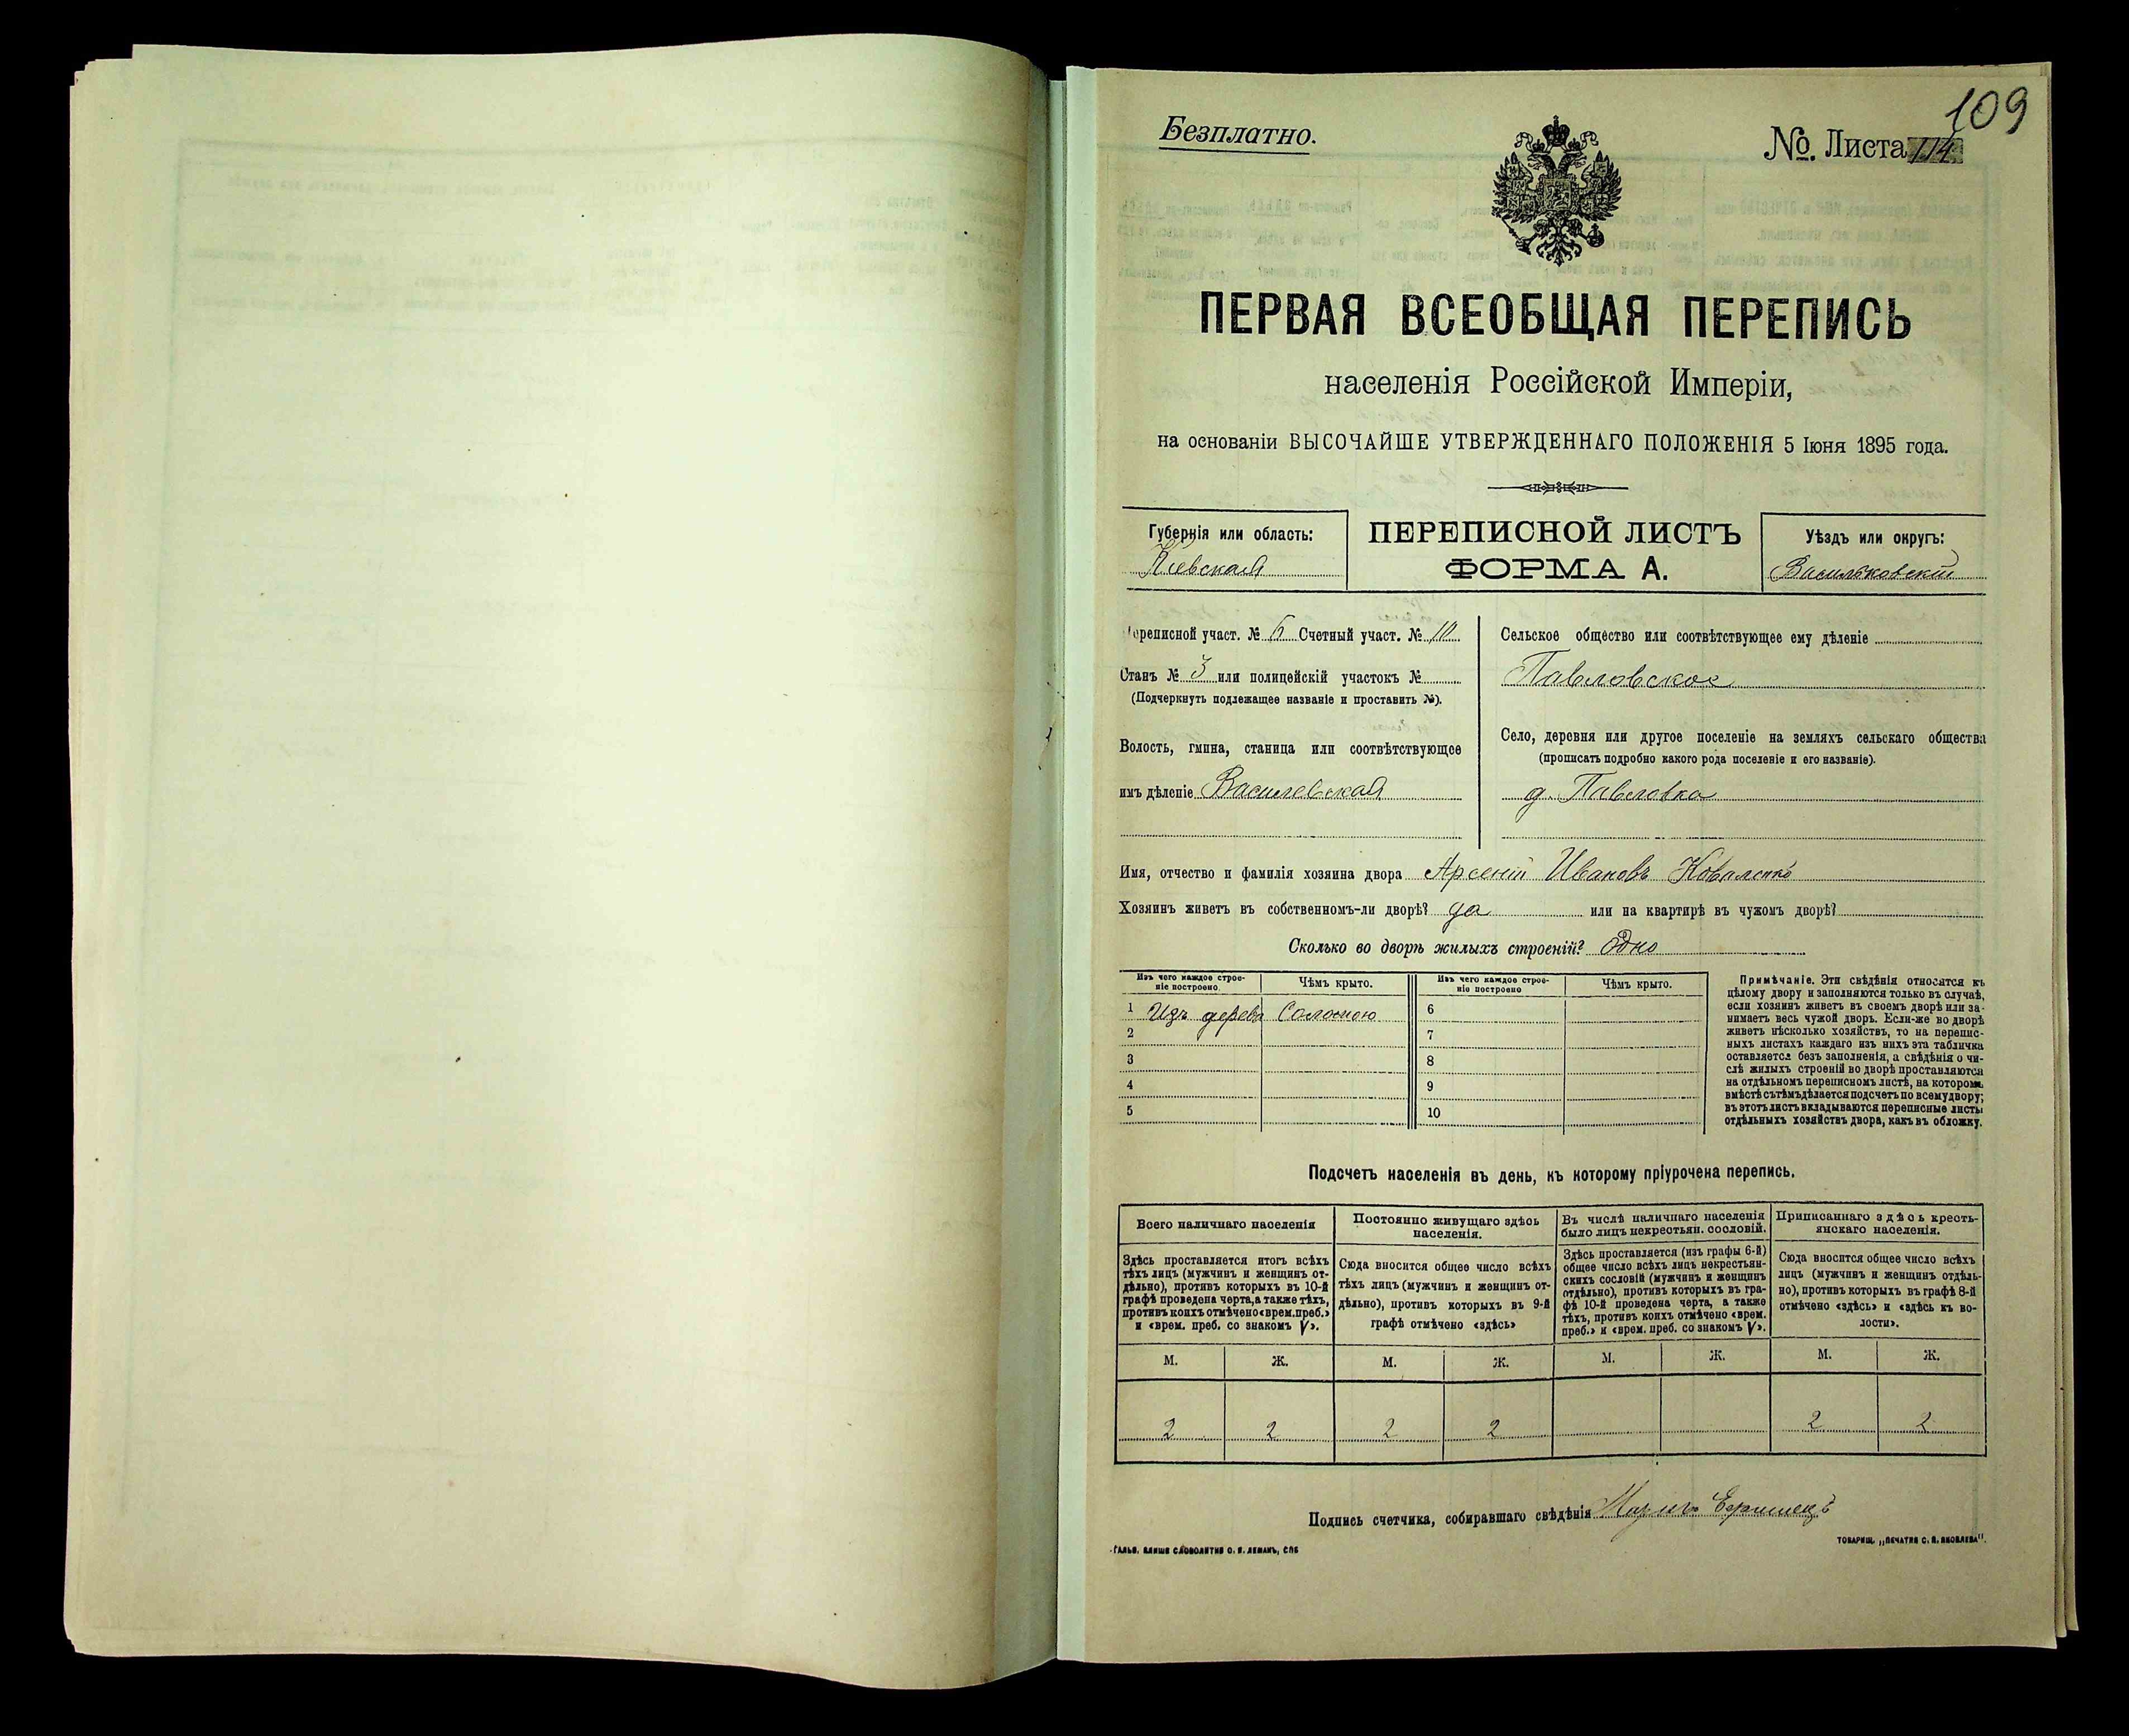 109
Безплатно.
№. Листа 114
ПЕРВАЯ ВСЕОБЩАЯ ПЕРЕПИСЬ
населенія Россійской Имперіи,
на основаніи ВЫСОЧАЙШЕ УТВЕРЖДЕННАГО ПОЛОЖЕНІЯ 5 Іюня 1895 года.
Губернія или область:
Кіевская
ПЕРЕПИСНОЙ ЛИСТЪ
ФОРМА А.
Уѣздъ или округъ:
Васильковскій
ереписной участ. № 6 Счетный участ. № 10
Станъ № 3 или полицейскій участокъ №
(Подчеркнуть подлежащее названіе и проставить №).
Волость, гмина, станица или соотвѣтствующее
имъ дѣленіе Василевская
Сельское общество или соотвѣтствующее ему дѣленіе
Павловское
Село, деревня или другое поселеніе на земляхъ сельскаго общества
(прописать подробно какого рода поселеніе и его названіе).
д. Павловка
Имя, отчество и фамилія хозяина двора Арсеній Ивановъ Коваленко
Хозяинъ живетъ въ собственномъ-ли дворѣ? да или на квартирѣ въ чужомъ дворѣ?
Сколько во дворѣ жилыхъ строеній? Одно
Изъ чего каждое строе-
ніе построено.
Чѣмъ крыто.
Изъ чего каждое строе-
ніе построено
Чѣмъ крыто.
1 Изъ дерева Соломою 6
2 7
3 8
4 9
5 10
Примѣчаніе. Эти свѣдѣнія относятся къ
цѣлому двору и заполняются только въ случаѣ,
если хозяинъ живетъ въ своемъ дворѣ или за-
нимаетъ весь чужой дворъ. Если-же во дворѣ
живетъ нѣсколько хозяйствъ, то на перепис-
ныхъ листахъ каждаго изъ нихъ эта табличка
оставляется безъ заполненія, а свѣдѣнія о чи-
слѣ жилыхъ строеній во дворѣ проставляются
на отдѣльномъ переписномъ листѣ, на которомъ
вмѣстѣ съ тѣмъ дѣлается подсчетъ по всему двору;
въ этотъ листъ вкладываются переписные листы
отдѣльныхъ хозяйствъ двора, какъ въ обложку.
Подсчетъ населенія въ день, къ которому пріурочена перепись.
Всего наличнаго населенія
Здѣсь проставляется итогъ всѣхъ
тѣхъ лицъ (мужчинъ и женщинъ от-
дѣльно), противъ которыхъ въ 10-й
графѣ проведена черта, а также тѣхъ,
противъ коихъ отмѣчено «врем. преб.»
и «врем. преб. со знакомъ V».
Постоянно живущаго здѣсь
населенія.
Сюда вносится общее число всѣхъ
тѣхъ лицъ (мужчинъ и женщинъ от-
дѣльно), противъ которыхъ въ 9-й
графѣ отмѣчено «здѣсь»
Въ числѣ наличнаго населенія
было лицъ некрестьян. сословій.
Здѣсь проставляется (изъ графы 6-й)
общее число всѣхъ лицъ некрестьян-
скихъ сословій (мужчинъ и женщинъ
отдѣльно), противъ которыхъ въ гра-
фѣ 10-й проведена черта, а также
тѣхъ, противъ коихъ отмѣчено «врем.
преб.» и «врем. преб. со знакомъ V».
Приписаннаго здѣсь кресть-
янскаго населенія.
Сюда вносится общее число всѣхъ
лицъ (мужчинъ и женщинъ отдѣль-
но), противъ которыхъ въ графѣ 8-й
отмѣчено «здѣсь» и «здѣсь къ во-
лости».
М. Ж. М. Ж. М. Ж. М. Ж.
2 2 2 2 2 2
Подпись счетчика, собиравшаго свѣдѣнія
ТОВАРИЩ. „ПЕЧАТНЯ С. П. ЯКОВЛЕВА".